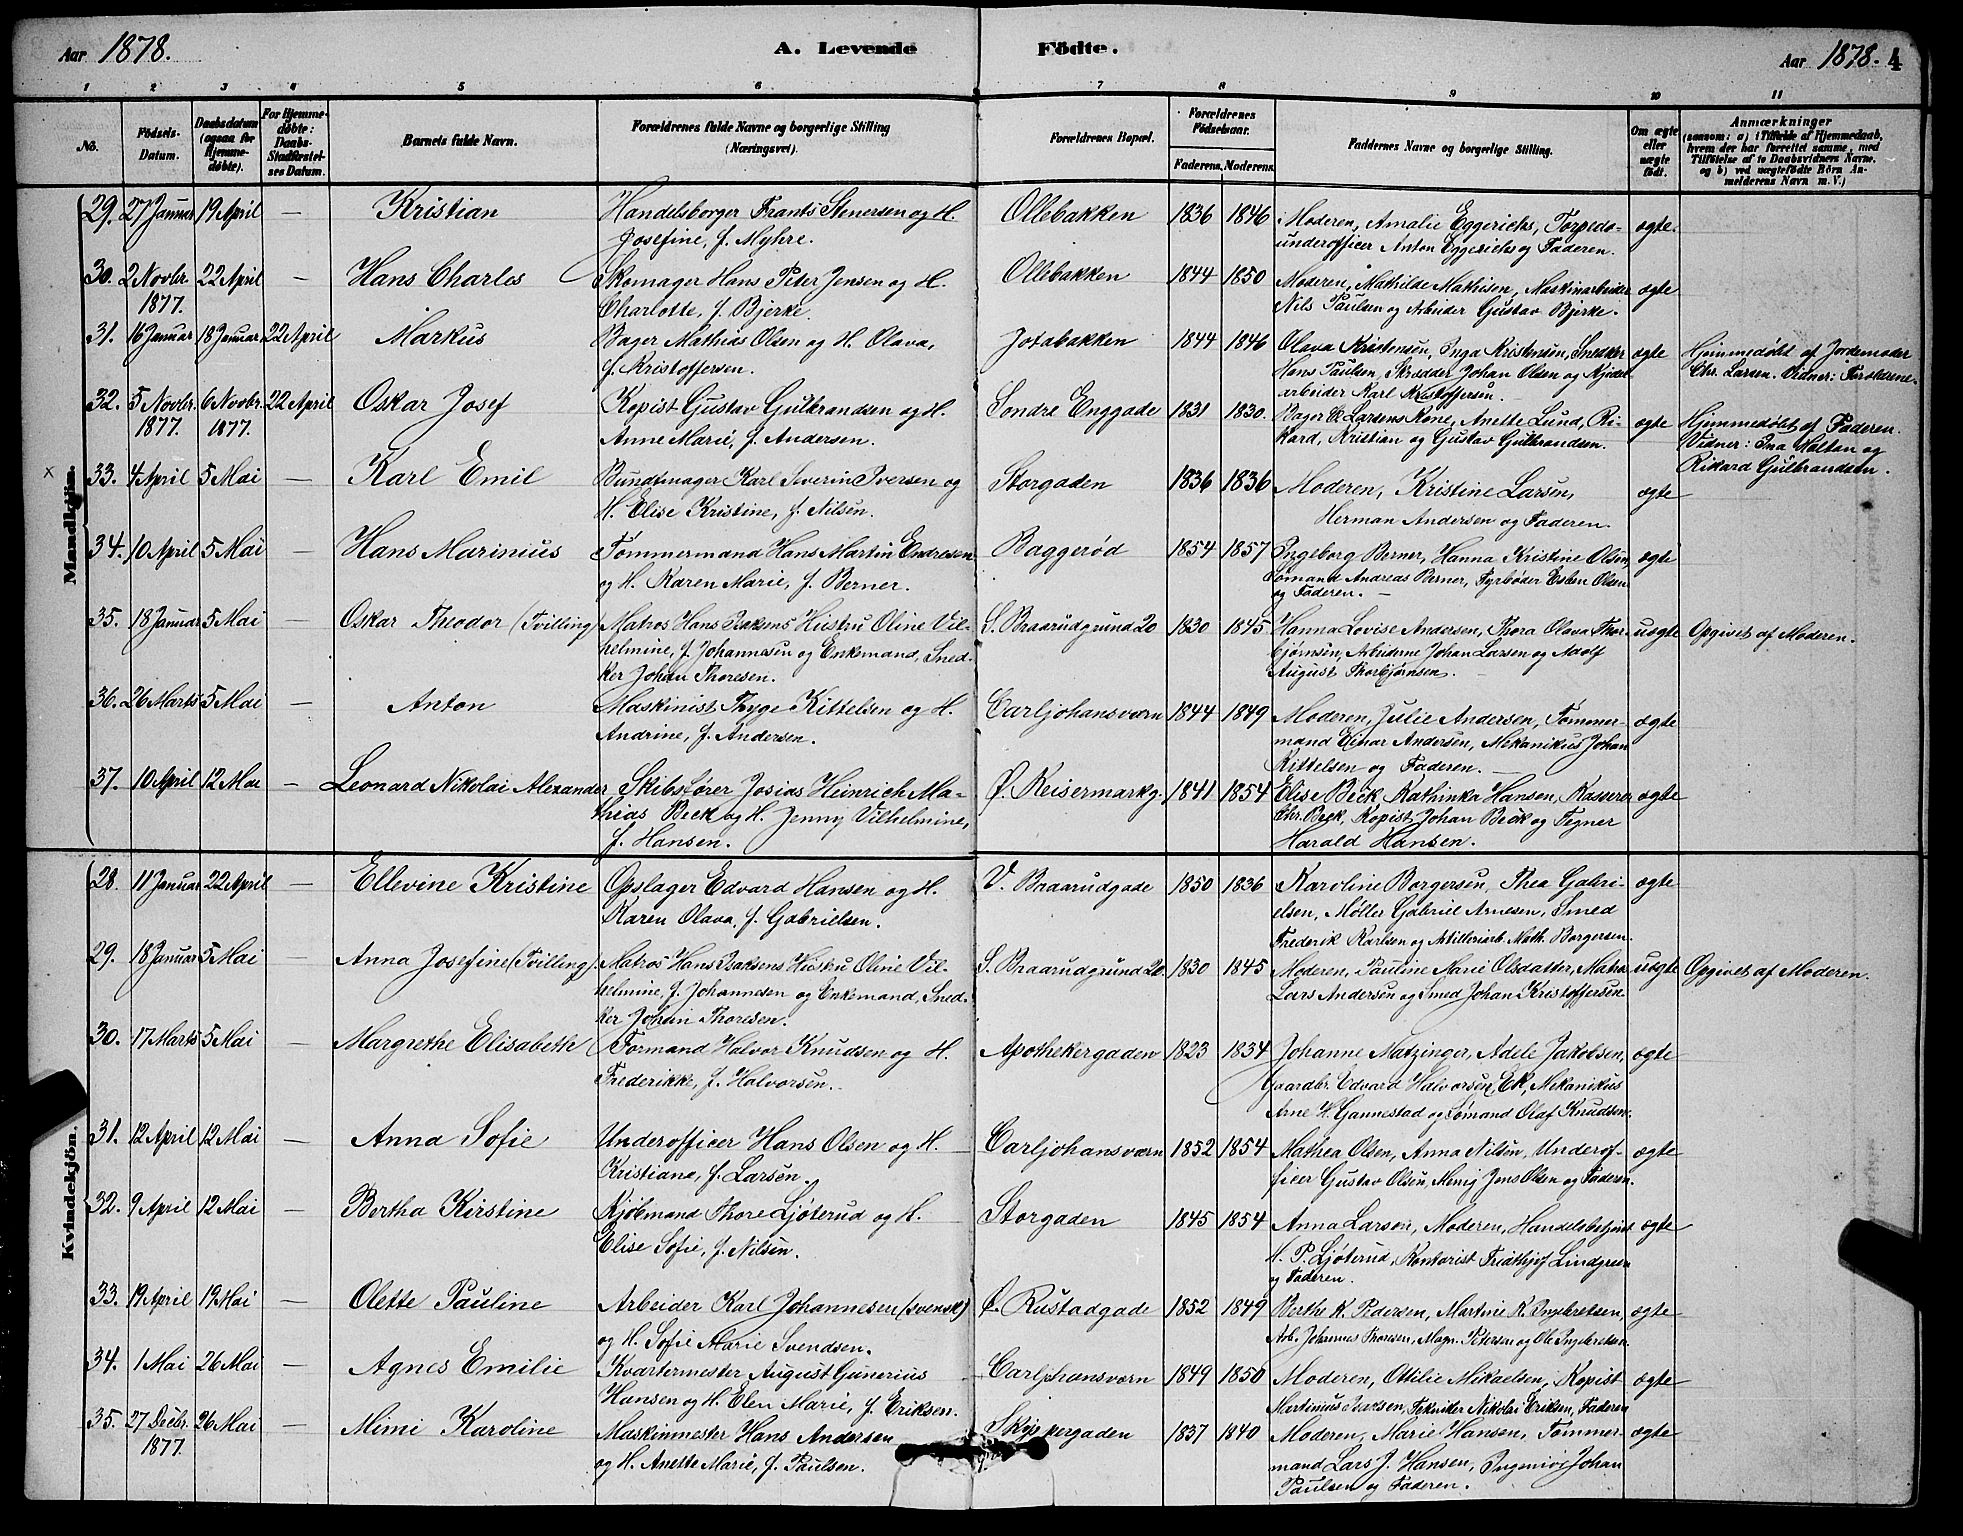 Aar 1878. A. Levende Födte. Aar 1878. 4
1 2 3 4 5 6 7 8 9 10 11
No. Födsels-Datum. Daabsdatum (ogsaa for Hjemme-döbte). For Hjemme-döbte: Daabs-Stadfæstel-ses Datum. Barnets fulde Navn. Forældrenes fulde Navne og borgerlige Stilling (Næringsvei). Forældrenes Bopæl. Forældrenes Födselsaar. Faderens. Moderens. Faddernes Navne og borgerlige Stilling. Om ægte eller uægte födt. Anmærkninger (saasom: a) i Tilfælde af Hjemmedaab, hvem der har forrettet samme, med Tilföielse af to Daabsvidners Navne, og b) ved uægtefödte Börn An-melderens Navn m. V.)
Mandkjön.
29. 27 Januar 19 April — Kristian Handelsborger Frants Stenersen og H. Ollebakken 1836 1846 Moderen, Amalie Eggerichs, Torpedo- ægte
Josefine, f. Myhre. underofficer Anton Eggerichs og Faderen.
30. 2 Novbr. 22 April — Hans Charles Skomager Hans Peter Jensen og H. Ollebakken 1844 1850 Moderen, Mathilde Mathisen, Maskinarbeider ægte
1877. Charlotte, f. Bjerke. Nils Paulsen og Arbeider Gustav Bjerke.
31. 16 Januar 18 Januar 22 April Markus Bager Mathias Olsen og H. Olava, Jotabakken 1844 1846 Olava Kristensen, Inga Kristensen, Snedker ægte Hjemmedøbt af Jordemoder
f. Kristoffersen. Hans Paulsen, Skrædder Johan Olsen og Kjedel- Chr. Larsen. Vidner: Forskrevne.
arbeider Karl Kristoffersen.
32. 5 Novbr. 6 Novbr. 22 April Oskar Josef Kopist Gustav Gulbrandsen og H. Søndre Enggade 1831 1830 Bager Larsens Kone, Anette Lund, Ri- ægte Hjemmedøbt af Faderen.
1877. 1877. Anne Marie, f. Andersen. kard, Kristian og Gustav Gulbrandsen. Vidner: Ina Moltau og
Rikard Gulbrandsen.
x 33. 4 April 5 Mai — Karl Emil Bundtmager Karl Severin Iversen og Storgaden 1836 1836 Moderen, Kristine Larsen, ægte
H. Elise Kristine, f. Nilsen. Herman Andersen og Faderen.
34. 10 April 5 Mai — Hans Marinius Tømmermand Hans Martin Endresen Baggerød 1854 1857 Ingeborg Berner, Hanna Kristine Olsen, ægte
og H. Karen Marie, f. Berner. Sømand Andreas Berner, Fyrbøder Esben Olsen
og Faderen.
35. 18 Januar 5 Mai — Oskar Theodor (Tvilling) Matros Hans Isaksens Hustru Oline Vil- S. Braarudgrund 20 1830 1845 Hanna Lovise Andersen, Thora Olava Thor- uægte Opgivet af Moderen.
helmine, f. Johannesen og Enkemand, Sned- bjørnsen, Arbeiderne Johan Larsen og Adolf
ker Johan Thoresen. August Thorbjørnsen.
36. 26 Marts 5 Mai — Anton Maskinist Thyge Kittelsen og H. Carljohansværn 1844 1849 Moderen, Julie Andersen, Tømmer- ægte
Andrine, f. Andersen. mand Einar Andersen, Mekanikus Johan
Kittelsen og Faderen.
37. 10 April 12 Mai — Leonard Nikolai Alexander Skibsfører Josias Heinrich Ma- Ø. Keisermarkg. 1841 1854 Elise Beck, Kathinka Hansen, Kasserer ægte
thias Beck og H. Jenny Vilhelmine, Chr. Beck, Kopist Johan Beck og Tegner
f. Hansen. Harald Hansen.
Kvindekjön.
28. 11 Januar 22 April — Ellevine Kristine Opslager Edvard Hansen og H. V. Braarudgade 1850 1836 Karoline Borgersen, Thea Gabri- ægte
Karen Olava, f. Gabrielsen. elsen, Møller Gabriel Arnesen, Smed
Frederik Karlsen og Artilleriarb. Math. Borgersen.
29. 18 Januar 5 Mai — Anna Josefine (Tvilling). Matros Hans Isaksens Hustru Oline Vil- S. Braarudgrund 20. 1830 1845 Moderen, Pauline Marie Olsdatter, Matros uægte Opgivet af Moderen.
helmine, f. Johannesen og Enkemand, Sned- Lars Andersen og Smed Johan Kristoffersen.
ker Johan Thoresen.
30. 17 Marts 5 Mai — Margrethe Elisabeth Formand Halvor Knudsen og H. Apothekergaden 1823 1834 Johanne Matzinger, Adele Jakobsen, ægte
Frederikke, f. Halvorsen. Gaardbr. Edvard Halvorsen, Ek, Mekanikus
Arne H. Gannestad og Sømand Olaf Knudsen.
31. 12 April 12 Mai — Anna Sofie Underofficer Hans Olsen og H. Carljohansværn 1852 1854 Mathea Olsen, Anna Nilsen, Underof- ægte
Kristiane, f. Larsen. ficer Gustav Olsen, Menig Jens Olsen og Faderen.
32. 9 April 12 Mai — Bertha Kirstine Kjøbmand Thore Ljøterud og H. Storgaden 1845 1854 Anna Larsen, Moderen, Handelsbetjent ægte
Elise Sofie, f. Nilsen. H. P. Ljøterud, Kontorist Fridthjof Lindgreen
og Faderen.
33. 19 April 19 Mai — Olette Pauline Arbeider Karl Johannesen (svensk) Ø. Rustadgade 1852 1849 Berthe K. Pedersen, Martine K. Ingebretsen, ægte
og H. Sofie Marie Svendsen. Arb. Johannes Thoresen, Magn. Petersen og Ole Ingebretsen.
34. 1 Mai 26 Mai — Agnes Emilie Kvartermester August Gunerius Carljohansværn 1849 1850 Moderen, Ottilie Mikaelsen, Kopist ægte
Hansen og H. Elen Marie, f. Eriksen. Martinius Isaksen, Tekniker Nikolai Eriksen, Faderen
35. 27 Decbr. 26 Mai — Mimi Karoline Maskinmester Hans Andersen Skippergaden 1837 1840 Moderen, Marie Hansen, Tømmer- ægte
1877. og H. Anette Marie, f. Paulsen. mand Lars J. Hansen, Ingeniør Johan
Paulsen og Faderen.